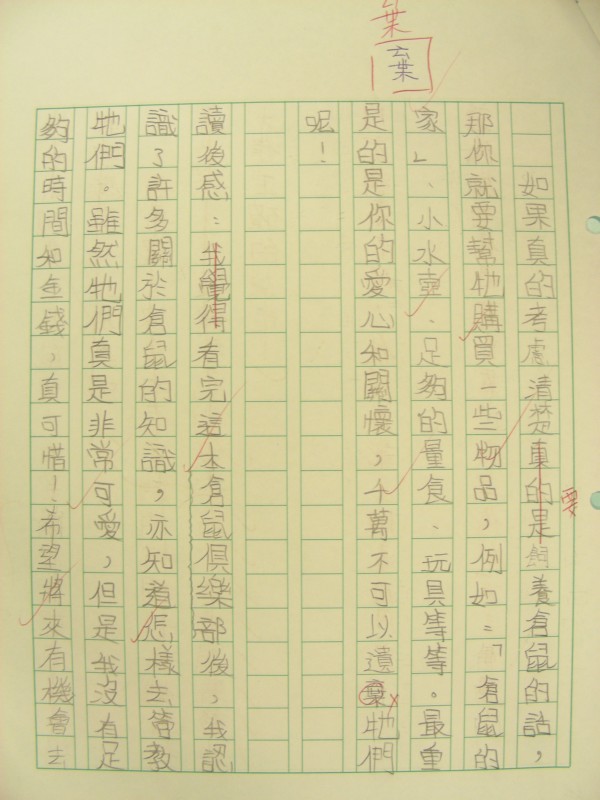 棄
棄
如果真的考慮清楚真的是飼養倉鼠的話，
要
那你就要幫牠購買一些物品，例如：「倉鼠的
家」、小水壺、足夠的量食、玩具等等。最重
是的是你的愛心和關懷，千萬不可以遺棄牠們
呢！
讀後感：我覺得有完這本倉鼠俱樂部後，我認
識了許多關於倉鼠的知識，亦知道怎樣去管教
牠們。雖然牠們真是非常可愛，但是我沒有足
夠的時間和金錢，真可惜！希望將來有機會去